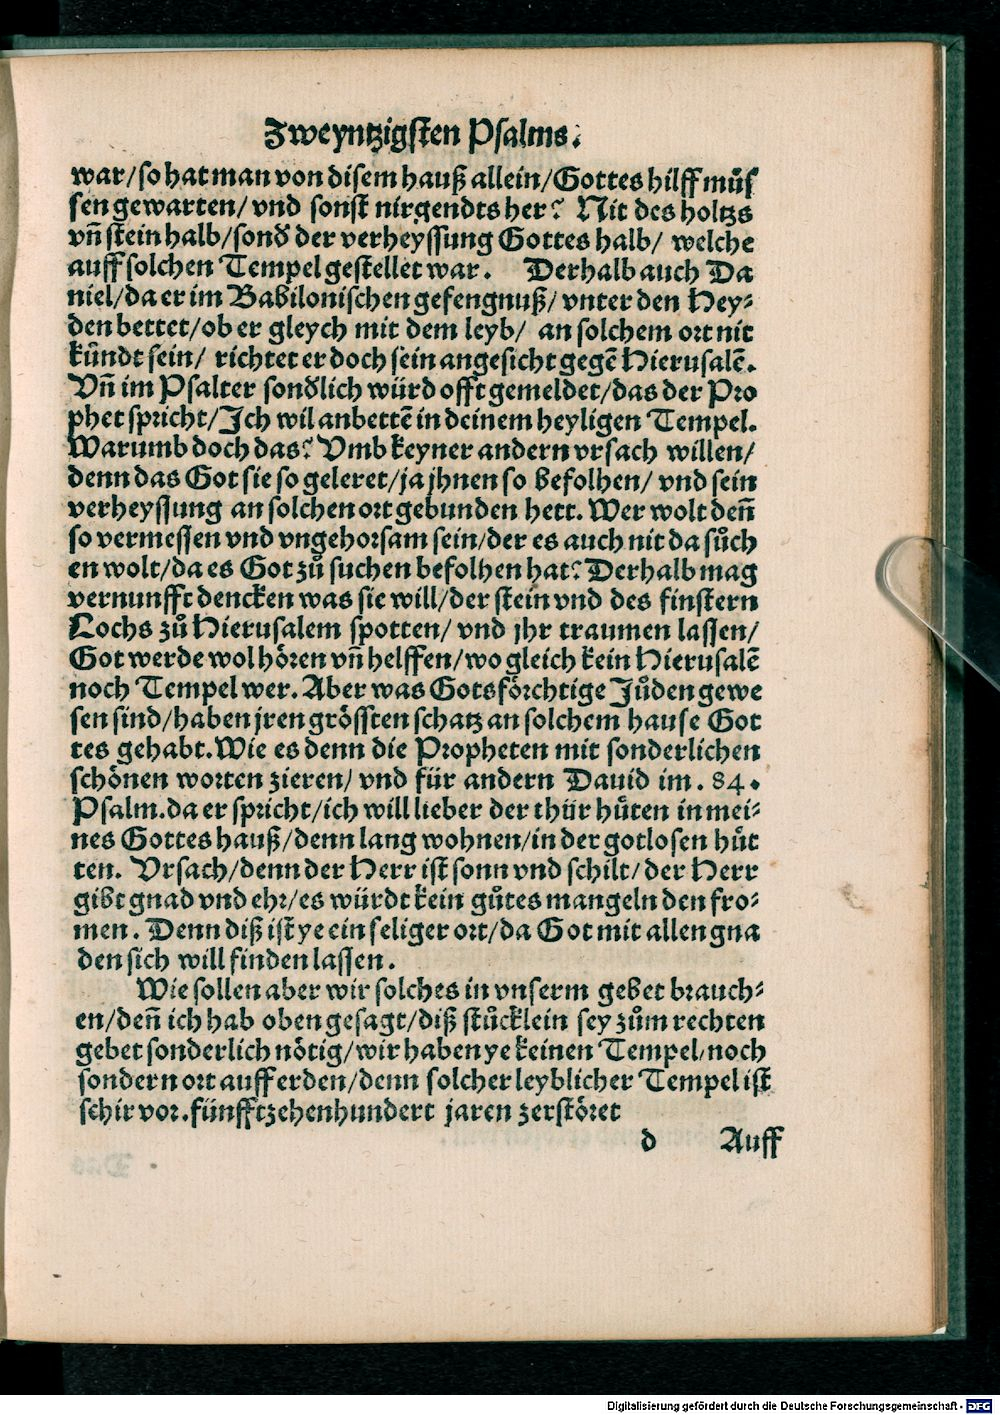 Zweyntzigsten Psalms.
war/so hat man von disem hauß allein/Gottes hilff muͤs
sen gewarten/vnd sonst nirgendts her? Nit des holtzs
vn̄ stein halb/sonđ der verheyssung Gottes halb/ welche
auff solchen Tempel gestellet war. Derhalb auch Da
niel/da er im Babilonischen gefengnuß/vnter den Hey⸗
den bettet/ob er gleych mit dem leyb/ an solchem ort nit
kuͤndt sein/ richtet er doch sein angesicht gegē Hierusalē.
Vn̄ im Psalter sonđlich würd offt gemeldet/das der Pro
phet spricht/Ich wil anbettē in deinem heyligen Tempel.
Warumb doch das? Vmb keyner andern vrsach willen/
denn das Got sie so geleret/ja jhnen so befolhen/ vnd sein
verheyssung an solchen ort gebunden hett. Wer wolt den̄
so vermessen vnd vngehorsam sein/der es auch nit da suͦch
en wolt/da es Got zuͦ suchen befolhen hat? Derhalb mag
vernunfft dencken was sie will/der stein vnd des finstern
Lochs zuͦ Hierusalem spotten/ vnd jhr traumen lassen/
Got werde wol hoͤren vn̄ helffen/wo gleich kein Hierusalē
noch Tempel wer. Aber was Gotsfoͤrchtige Juͦden gewe
sen sind/haben jren groͤssten schatz an solchem hause Got
tes gehabt. Wie es denn die Propheten mit sonderlichen
schoͤnen worten zieren/ vnd für andern Dauid im. 84.
Psalm. da er spricht/ich will lieber der thür huͤten in mei⸗
nes Gottes hauß/denn lang wohnen/in der gotlosen huͤt
ten. Vrsach/denn der Herr ist sonn vnd schilt/ der Herr
gibt gnad vnd ehr/es würdt kein guͦtes mangeln den fro⸗
men. Denn diß ist ye ein seliger ort/da Got mit allen gna
den sich will finden lassen.
Wie sollen aber wir solches in vnserm gebet brauch⸗
en/den̄ ich hab oben gesagt/diß stuͤcklein sey zuͦm rechten
gebet sonderlich noͤtig/wir haben ye keinen Tempel/noch
sondern ort auff erden/denn solcher leyblicher Tempel ist
schir vor. fünfftzehenhundert jaren zerstoͤret
d Auff
Digitalisierung gefördert durch die Deutsche Forschungsgemeinschaft - DFG